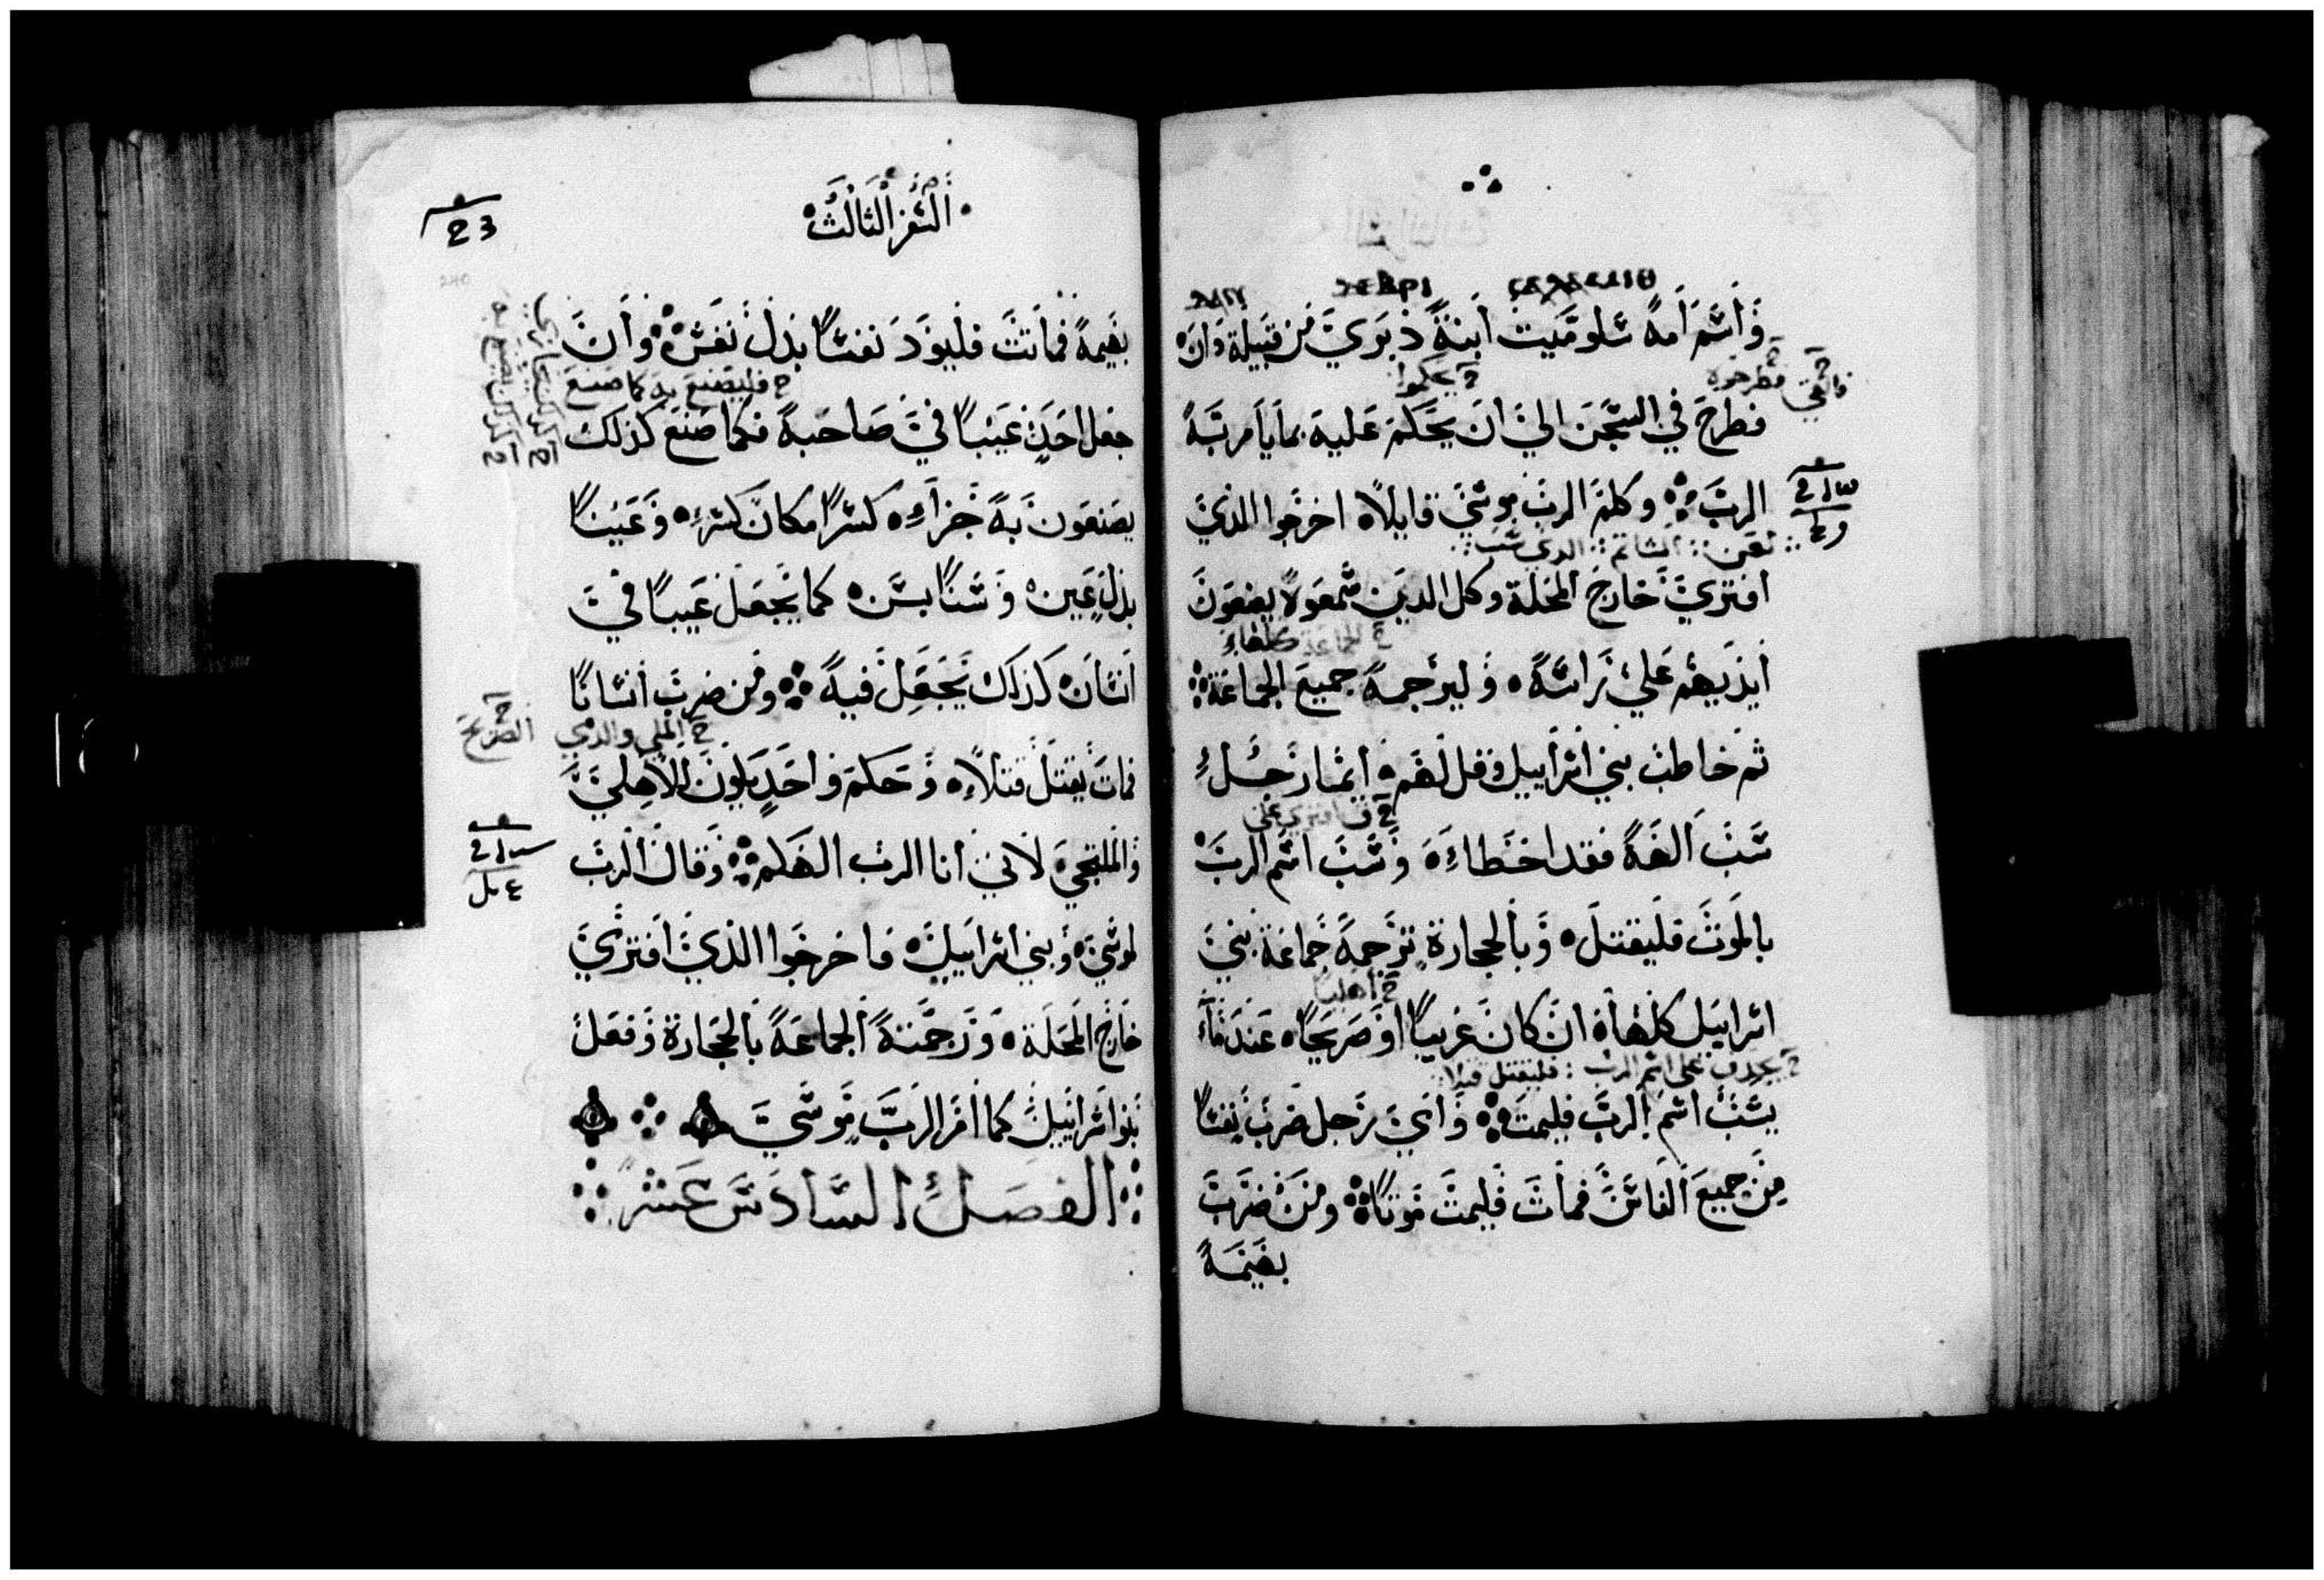 ⲇⲁⲛ
واسم امه سلوميت ابنة دبري من قبيلة دان
ح فطرحوه
ح يحكموا
فطرح في السجن الي ان يحكم عليه بما يامر به
الرب وكلم الرب موسي قايلا اخرجوا الذي
الذي سب
افتري خارج المحلة وكل الذين سمعوا يضعون
ح الجماعة كلها
ايديهم علي راسه وليرجمه جميع الجماعة
ثم خاطب بني اسراييل وقل لهم ايما رجل
سب الهه فقد اخطاء وسب اسم الرب
بالموت فليقتل وبالحجارة ترجمه جماعة بني
اسراييل كلها ان كان غريبا او صريحا عندما
علي اسم الرب فليقتل قتلا
يسب اسم الرب فليمت واي رجل ضرب نفسا
من جميع الناس فمات فليمت موتا ومن ضرب
بهيمة
السفر الثالث
23
بهيمة فماتت فليود نفسا بدل نفس وان
ح فليصنع به كما صنع
جعل احد عيبا في صاحبه فكما صنع كذلك
يصنعون به جزاء كسرا مكان كسر وعينا
بدل عين وسنا بسن كما يجعل عيبا في
انسان كذلك يجعل فيه ومن ضرب انسانا
الصريح
فمات يقتل قتلا وحكم واحد يكون للاهلي
والملتجي لانني انا الرب الهكم وقال الرب
لموسي وبني اسراييل فاخرجوا الذي افتري
خارج المحلة ورجمته الجماعة بالحجارة وفعل
بنو اسراييل كما امر الرب موسي
الفصل السادس عشر